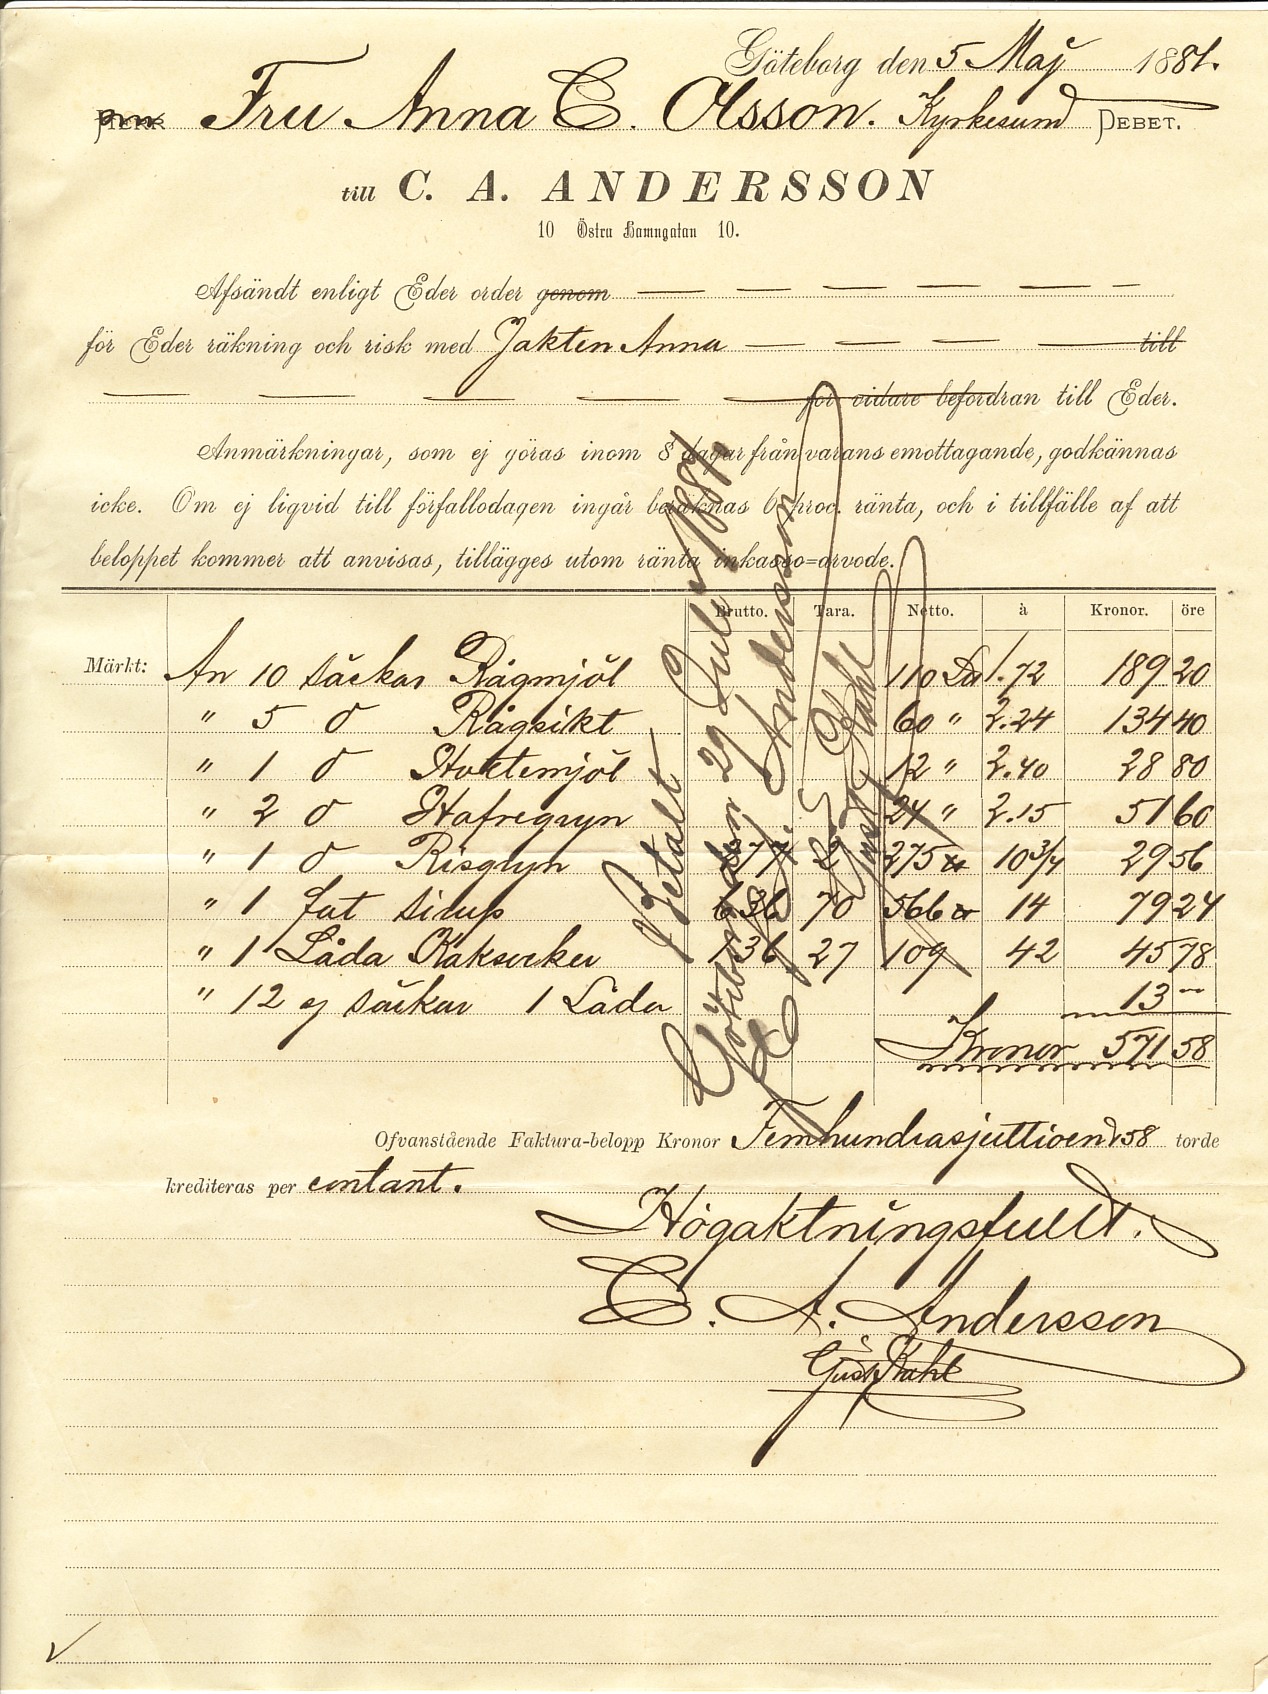 Göteborg den 5 Maj 1881.
Herr Fru Anna C. Olsson. Kyrkesund DEBET.
till C. A. ANDERSSON
10 Östra Hamngatan 10.
Afsändt enligt Eder order genom
för Eder räkning och risk med Jakten Anna till
för vidare befordran till Eder.
Anmärkningar, som ej göras inom 8 dagar från varans emottagande, godkännas
icke. Om ej liqvid till förfallodagen ingår beräknas 6 proc. ränta, och i tillfälle af att
beloppet kommer att anvisas, tillägges utom ränta inkasso=arvode.
Brutto. Tara. Netto. à Kronor. öre
Märkt: An 10 säckar Rågmjöl 110 1.72 189 20
" 5 d Rågsikt 60 " 2.24 134 40
" 1 d Hvetemjöl 12 " 2.40 28 80
" 2 d Hafregryn 24 " 2.15 51 60
" 1 d Risgryn 277 2 275 10 3/4 29 56
" 1 fat Sirup 636 70 566 14 79 24
" 1 Låda Kaksocker 136 27 109 42 45 78
" 12 ej säckar 1 Låda 13 "
Kronor 571 58
Betalt
Göteborg den 29 Juli 1881
C. A. Andersson
Gust Stahl
Ofvanstående Faktura-belopp Kronor Femhundrasjuttioen 58 torde
krediteras per contant.
Högaktningsfullt.
C. A. Andersson
Gust Stahl